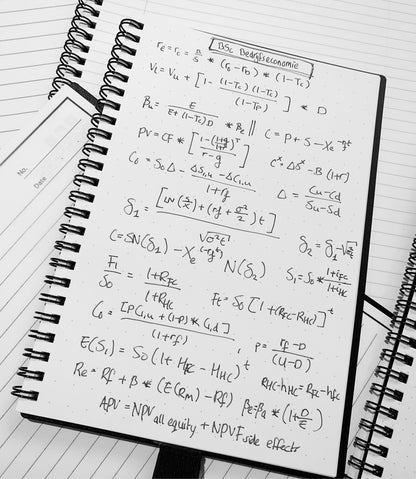 BSc Bedrijfseconomie
re = ro = B/S * (ro - rD) * (1-Tc)
VL = Vu + [1 - (1-Tc)(1-Tc)/(1-TP)] * D
Ba = E/(E+(1-Tc)D) * Be || C = P + S - Xe^-rt
PV = CF * [1-(1+g/1+r)^T / r-g] C^x ΔS^x - B(1+r)
C0 = S0Δ - ΔS1,u - ΔC1,u / 1+rf Δ = Cu-Cd / Su-Sd
δ1 = [LN(S/X) + (rf + σ²/2)t] / √σ²t δ2 = δ1 - √σ²t
C = SN(δ1) - Xe^(-rft) N(δ2) S1 = S0 * 1+iFC / 1+iHC
F1/S0 = 1+RFC / 1+RHC Ft = S0 [1+(RFC-RHC)]^t
C0 = [PC1,u + (1-P) * C1,d] / (1+rf), P = rf-D / (U-D)
E(S1) = S0(1 + HFC - HHC)^t RHC-hHC = RFC-hFC
Re = Rf + B * (E(RM) - Rf) Be = Ba * (1+D/E)
APV = NPV all equity + NPVF side effects
No.
Date